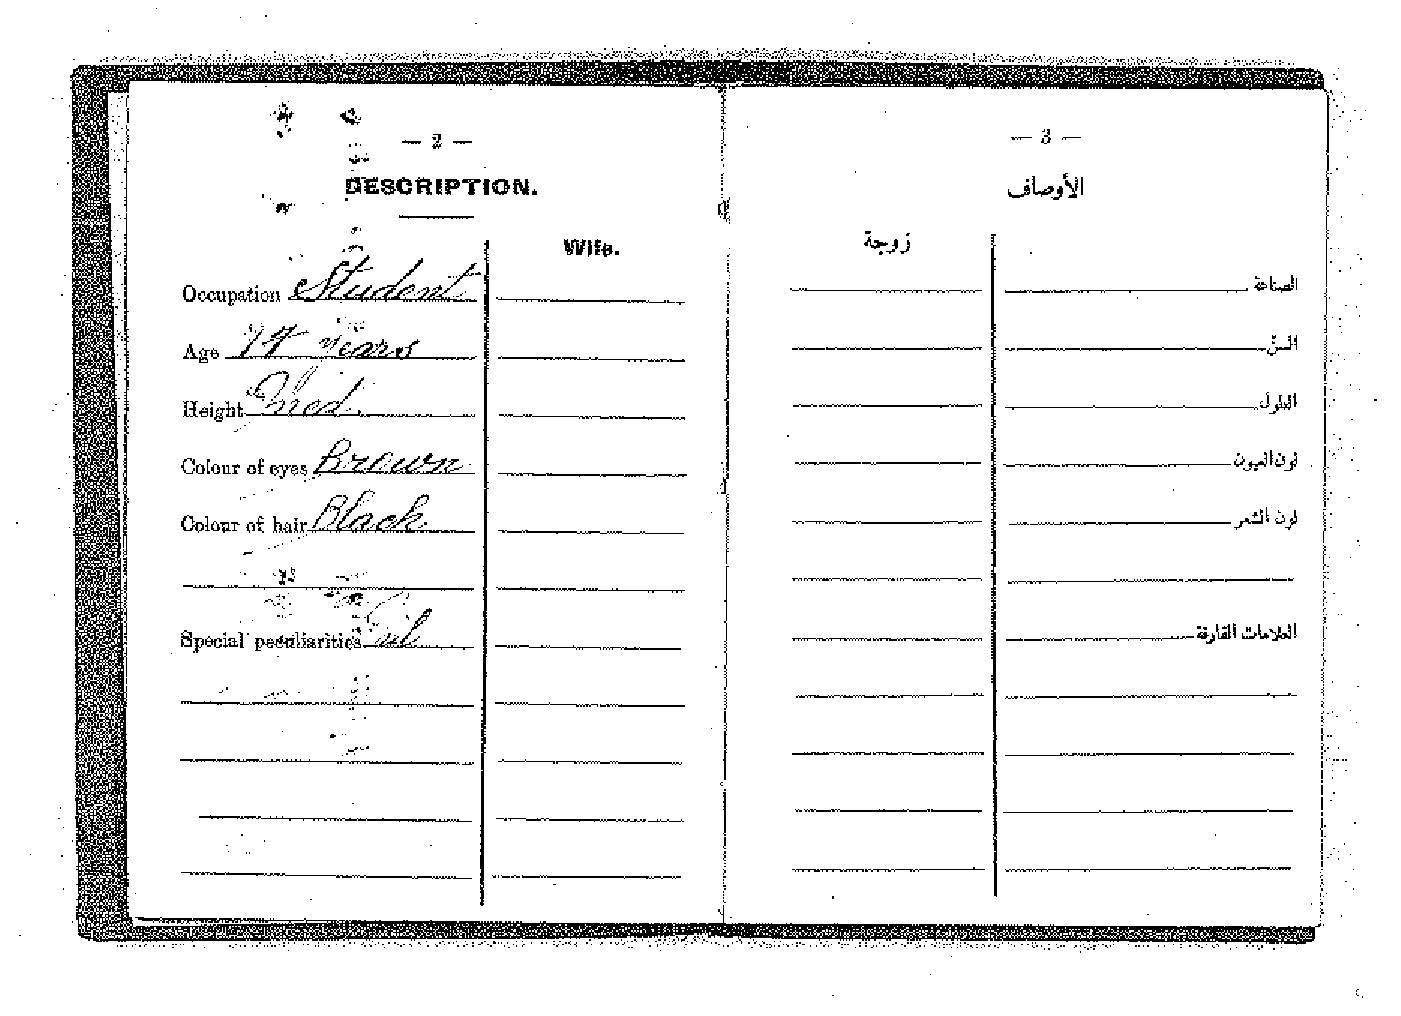 — 2 —
DESCRIPTION.
Wife.
Occupation Student
Age years
Height Med.
Colour of eyes Brown
Colour of hair Black
Special peculiarities
— 3 —
الأوصاف
زوجة
الصناعة
السنّ
الطول
لون العيون
لون الشعر
العلامات الفارقة